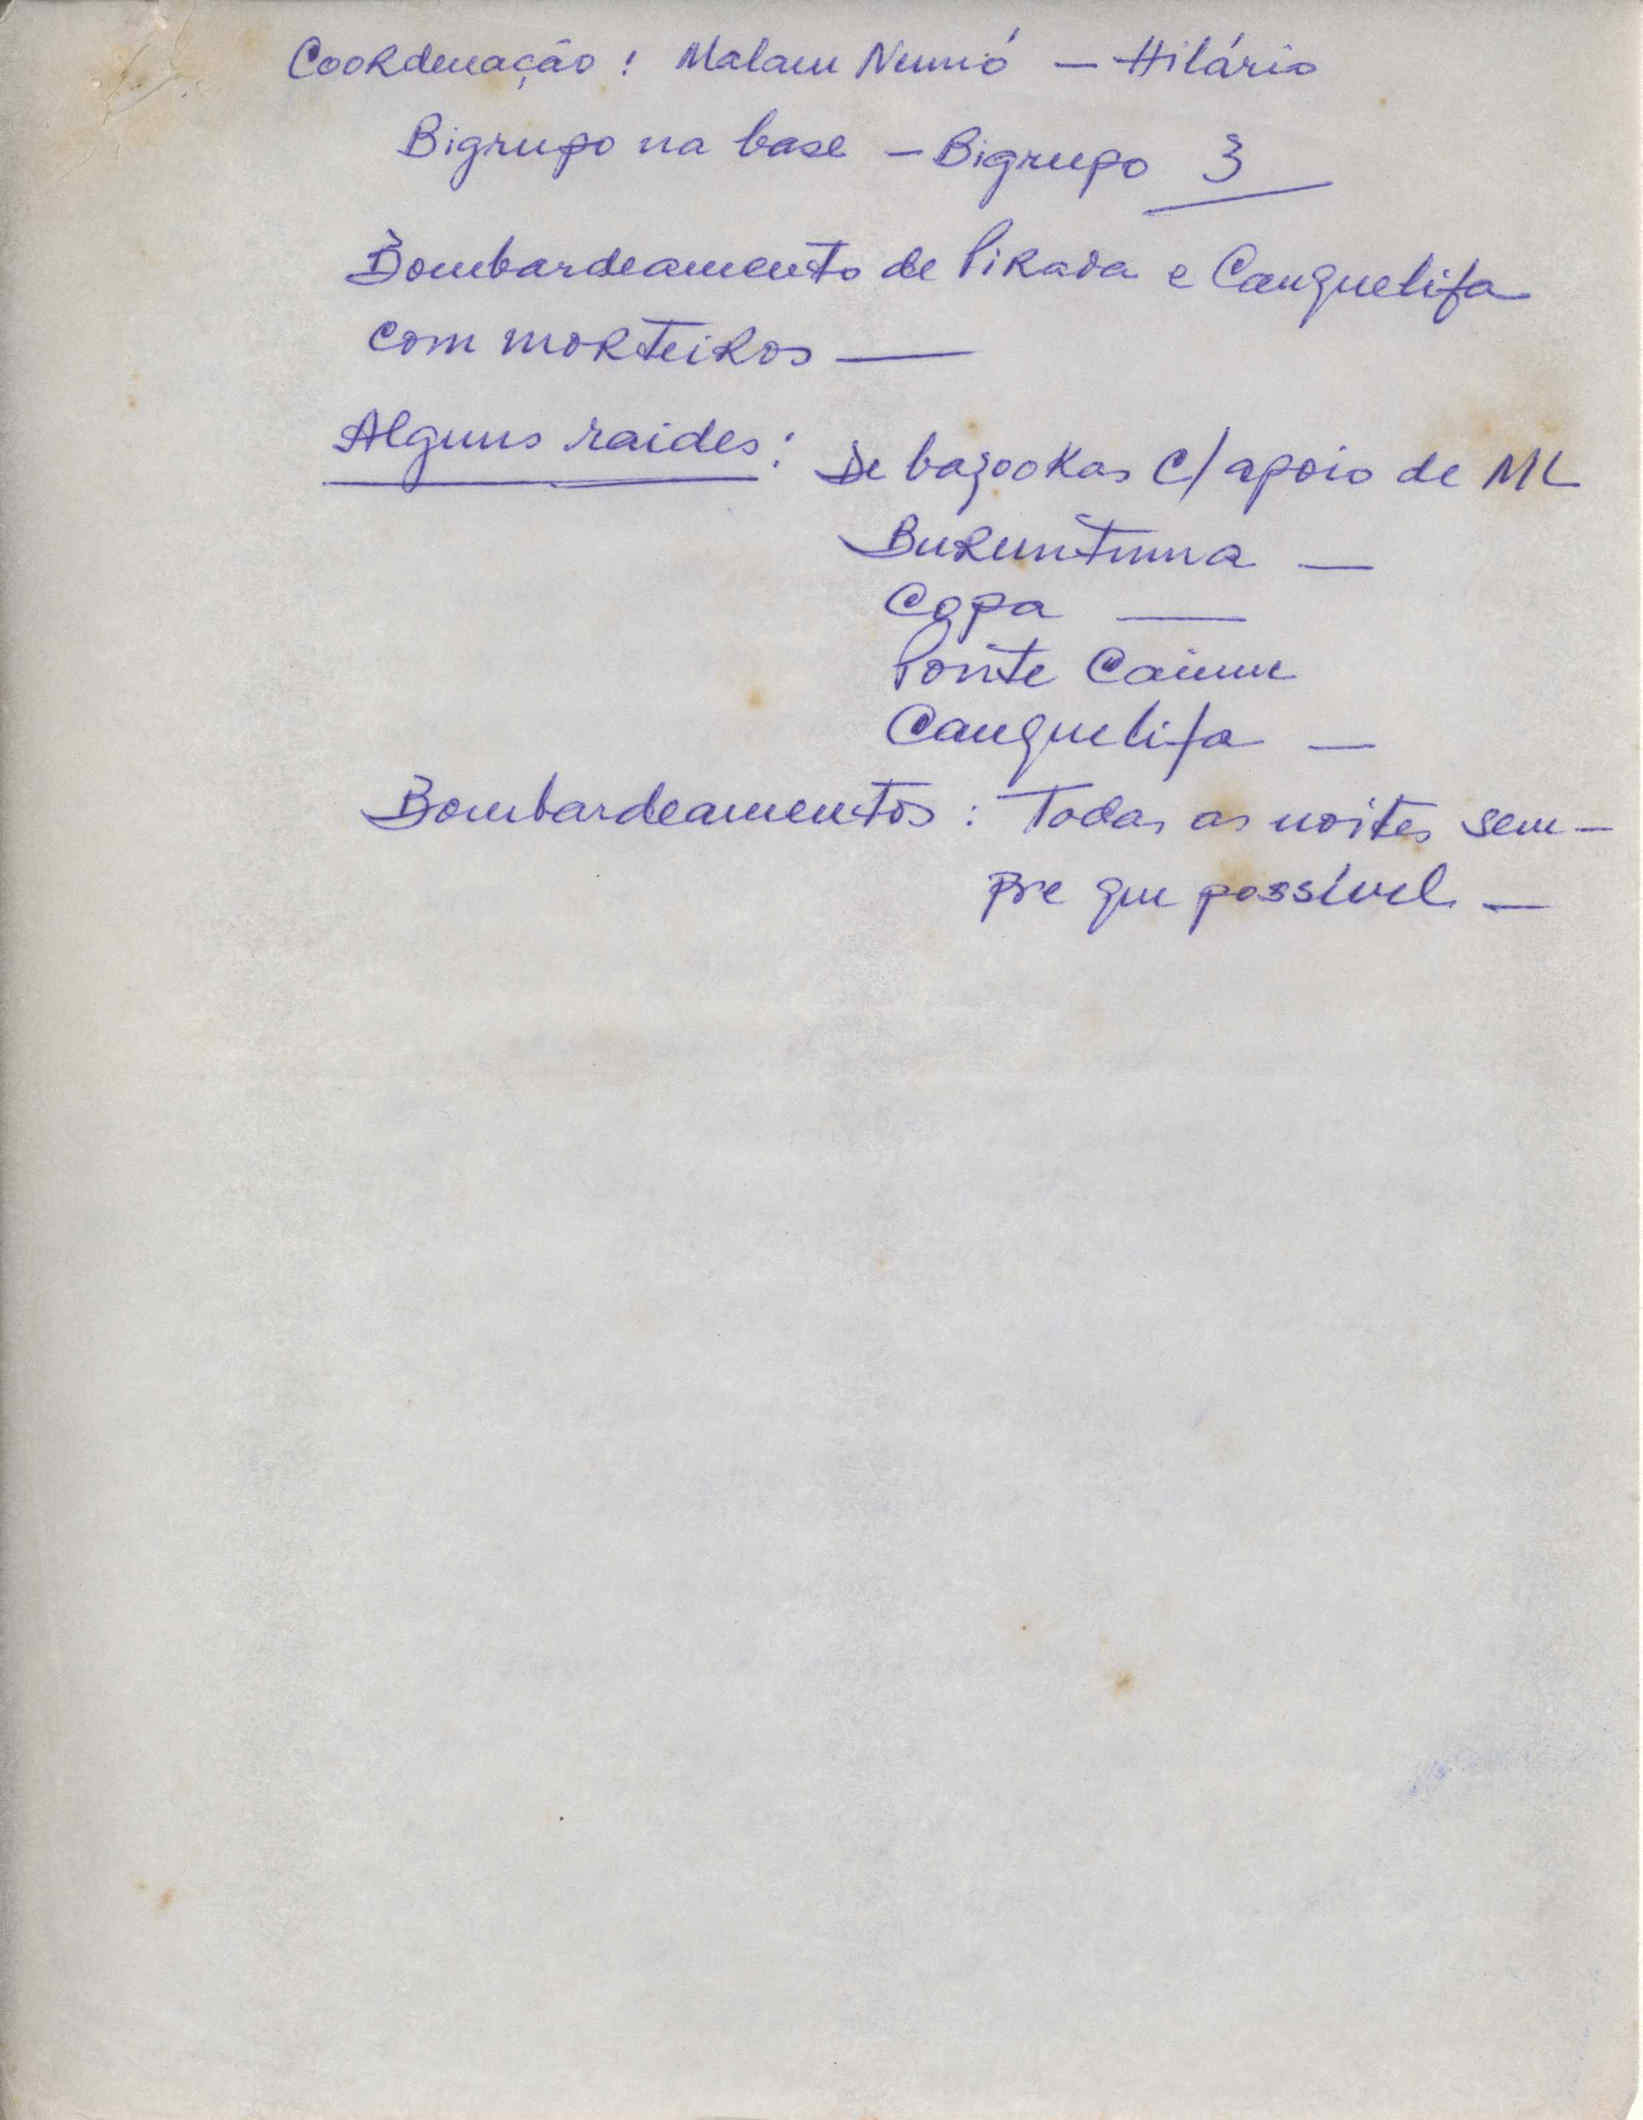 Coordenação: Malam Numió — Hilário
Bigrupo na base — Bigrupo 3
Bombardeamento de Pirada e Canquelifa
com morteiros —
Alguns raides: De bazookas c/ apoio de ML
Buruntuma —
Copa —
Ponte Caium
Canquelifa —
Bombardeamentos: Todas as noites sem-
pre que possível —